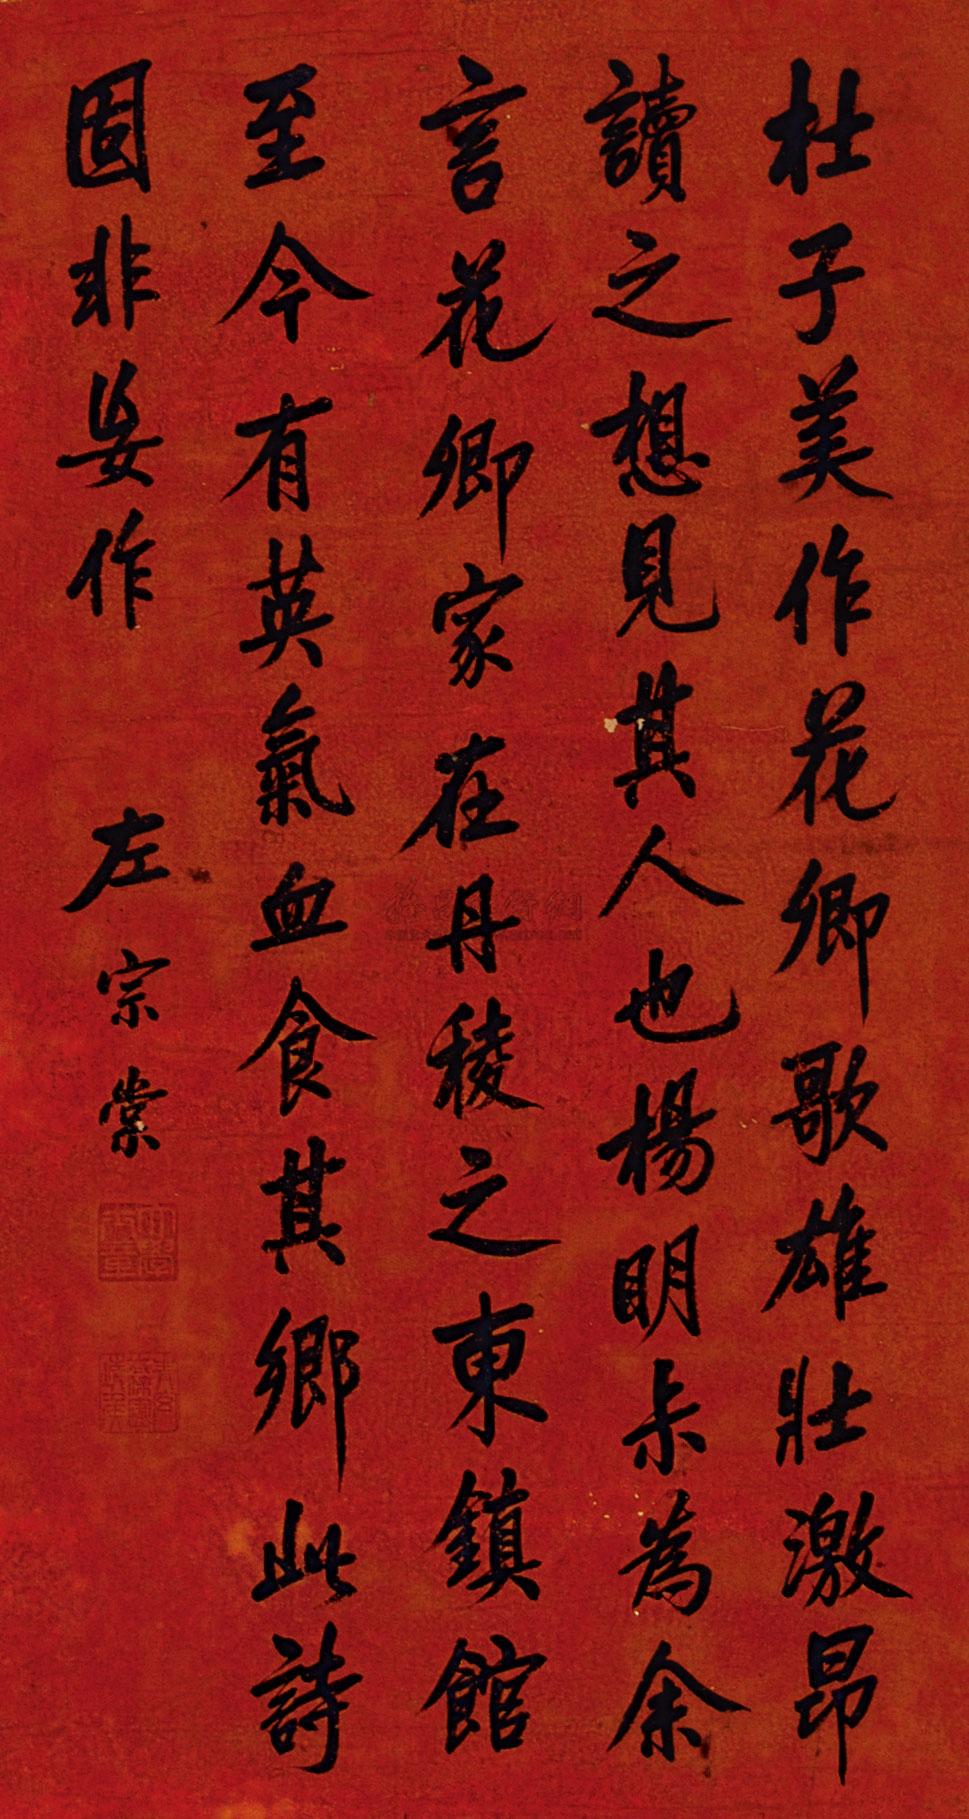 杜子美作花卿歌雄壯激昂
讀之想見其人也楊明未為余
言花卿家在丹稜之東鎮館
至今有英氣血食其鄉此詩
固非妄作
左宗棠